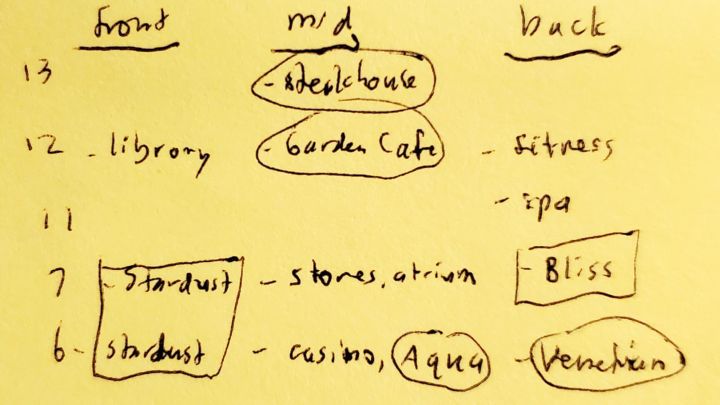 front mid back
13 - steakhouse
12 - library - Garden Cafe - fitness
- spa
11
7 - Stardust - stores, atrium - Bliss
6 - stardust - casino, Aqua - Venetian